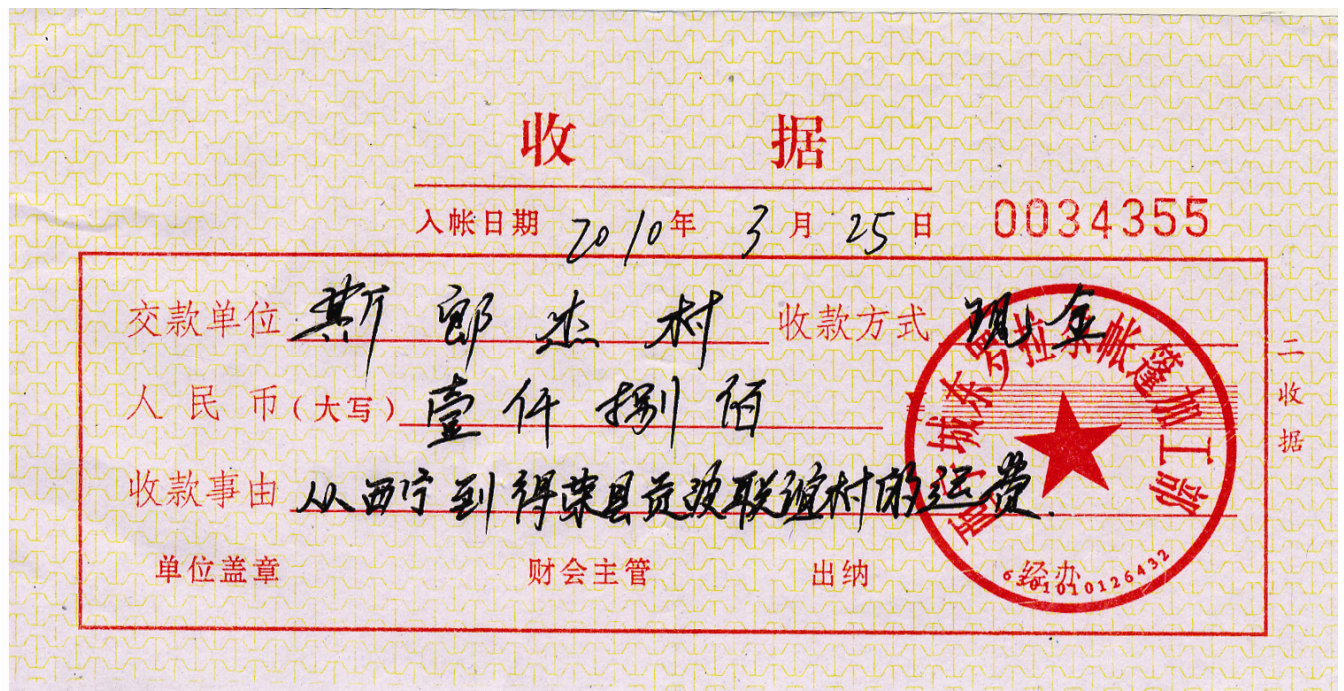 收 据
入帐日期 2010年 3月 25日 0034355
交款单位 斯郎杰村 收款方式 现金
人民币(大写) 壹仟捌佰
收款事由 从西宁到得荣县贡波联谊村的运费.
单位盖章 财会主管 出纳 经办
二收据
西宁城东罗拉家帐篷加工部
6301010126432